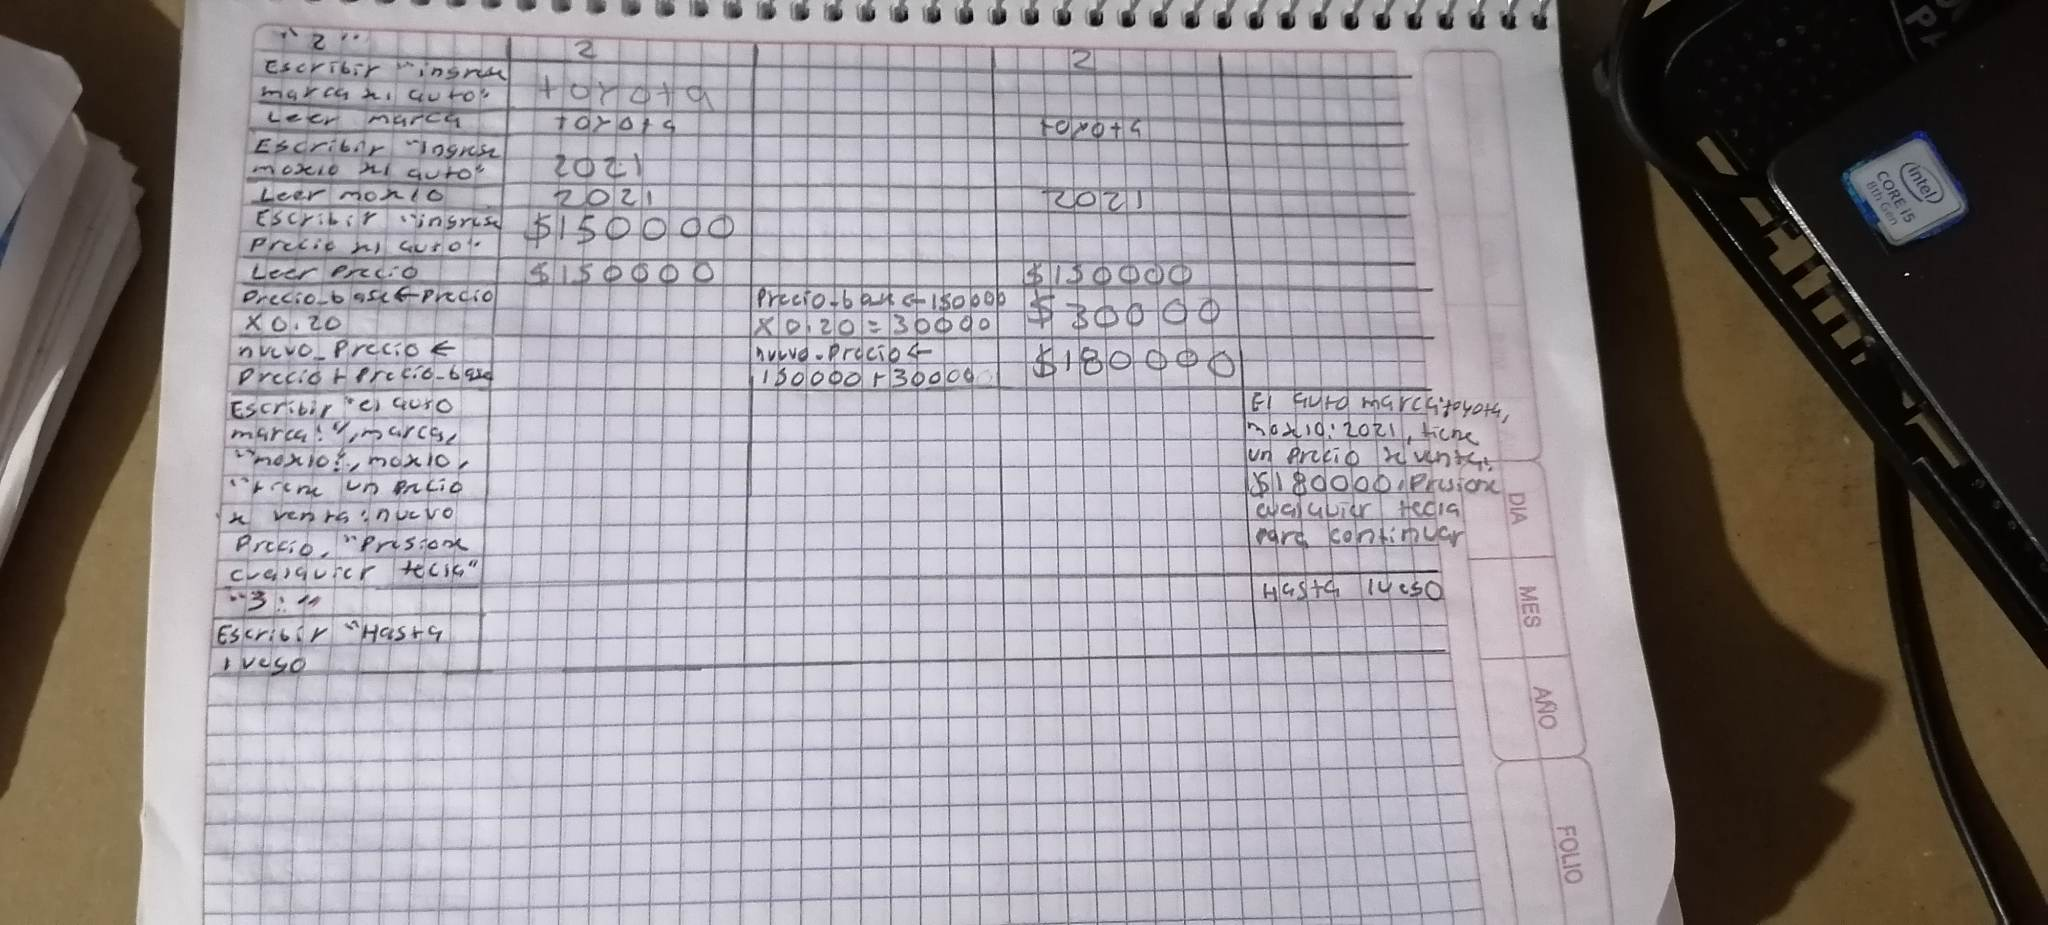 "2"
2
2
Escribir "ingrese
marca del auto"
toyota
Leer marca
toyota
toyota
Escribir "Ingrese
modelo del auto"
2021
Leer modelo
2021
2021
Escribir "ingrese
precio del auto"
$150000
Leer Precio
$150000
$150000
Precio_base←precio
X 0.20
Precio_base←150000
X 0.20 = 30000
$30000
nuevo_Precio ←
Precio + Precio_base
nuevo_Precio←
150000+30000
$180000
Escribir "el auto
marca:", marca,
"modelo:", modelo,
"tiene un precio
de venta: nuevo
Precio, "Presione
cualquier tecla"
El auto marca:toyota,
modelo:2021, tiene
un precio de venta:
$180000, Presione
cualquier tecla
para continuar
"3:"
Escribir "Hasta
luego
Hasta luego
DIA
MES
AÑO
FOLIO
intel
CORE i5
8th Gen